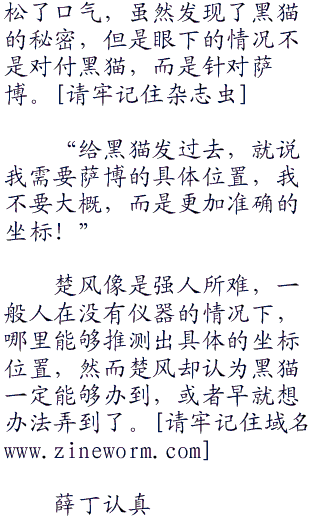 松了口气，虽然发现了黑猫
的秘密，但是眼下的情况不
是对付黑猫，而是针对萨
博。[请牢记住杂志虫]
“给黑猫发过去，就说
我需要萨博的具体位置，我
不要大概，而是更加准确的
坐标！”
楚风像是强人所难，一
般人在没有仪器的情况下，
哪里能够推测出具体的坐标
位置，然而楚风却认为黑猫
一定能够办到，或者早就想
办法弄到了。[请牢记住域名
www.zineworm.com]
薛丁认真